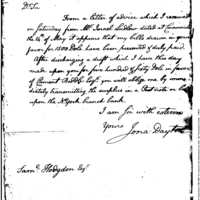 D. Sir
From a letter of advice which I received
on Saturday from Mr. Israel Ludlow dated at Cincinnati
the 14th of May it appears that my bills drawn in your
favor for 1500 Dols have been presented & duly paid.
After discharging a draft which I have this day
made upon you for five hundred & forty Dols in favor
of Edward Esqr. you will oblige me by
transmitting the surplus in a Post note or
upon the N. York branch bank.
I am Sir with esteem
Yours
Jona Dayton
Saml. Hodgdon Esqr.